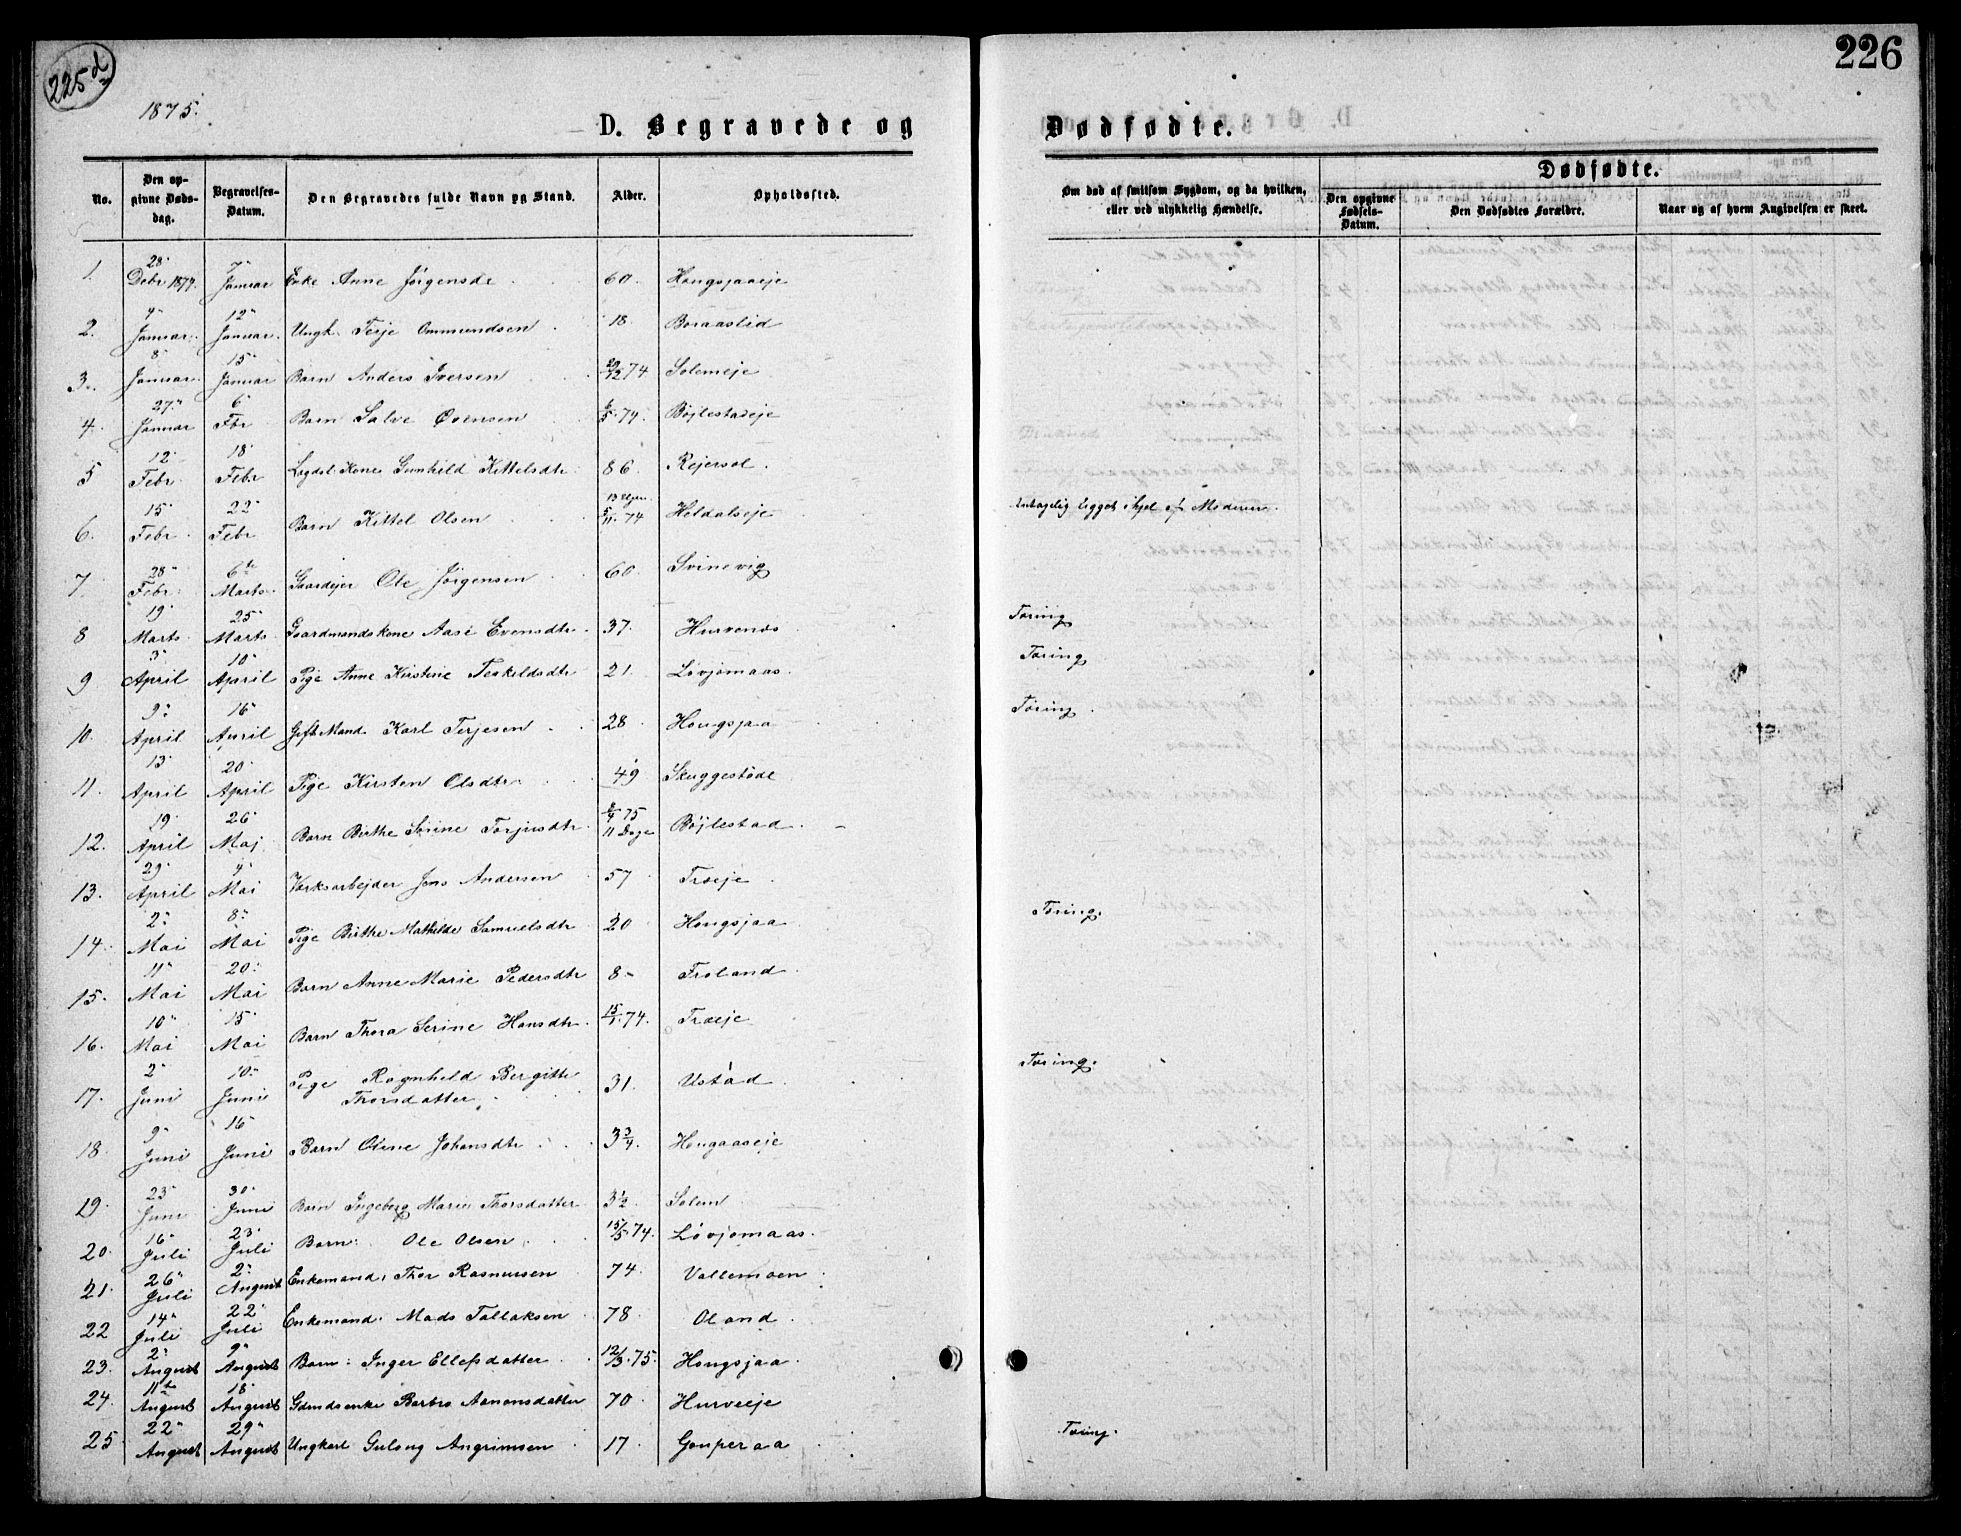 225d
226
1875.
D. Begravede og Dødfødte.
No. Den opgivne Dødsdag. Begravelses-Datum. Den Begravedes fulde Navn og Stand. Alder. Opholdssted. Om død af smitsom Sygdom, og da hvilken, eller ved ulykkelig Hændelse. Dødfødte. Den opgivne Fødsels-Datum. Den Dødfødtes Forældre. Naar og af hvem Angivelsen er skeet.
1. 28 Debr 1874. 7 Januar Enke Anne Jörgensdr 60. Hougsjaaeje
2. 4 Januar. 12 Januar. Ungk. Terje Ommundsen 18. Boraastid
3. 8 Januar. 15 Januar Barn Anders Iversen 29/12 74 Solemeje
4. 27 Januar 6 Fbr Barn Salve Övensen 6/5 74. Böjlestadeje
5 12 Febr. 18 Febr Legdsl. Kone Gunhild Kittelsdtr 86. Rejersöl.
6. 15 Febr. 22 Febr Barn Kittel Olsen 13 Uger 5/11 74 Heldalseje Antagelig ligget ihjel af Moderen.
7 28 Febr. 6te Marts. Gaardejer Ole Jörgensen 60. Svinevig
8 19 Marts. 25 Marts Gaardmandskone Aase Evensdtr. 37. Hurvenes Tæring
9 3 April 10 April Pige Anne Kirstine Terkildsdtr 21. Lövjomaas. Tæring
10. 9 April 16 April Gift Mand. Karl Terjesen 28 Hougsjaa Tæring.
11. 13 April 20 April Pige Kirsten Olsdtr 49 Skuggestöde
12. 19 April 26 Maj Barn Birthe Serine Torjusdtr. 8/4 75 11 Dage Böjlestad.
13. 29 April 4 Mai Værksarbejder Jens Andersen 57 Træeje
14. 2 Mai 8 Mai Pige Birthe Mathilde Samuelsdtr 20 Hougsjaa Tæring.
15. 11 Mai 20 Mai Barn Anne Marie Pedersdtr 8 Froland
16. 10 Mai 15 Mai Barn Thora Serine Hansdtr. 15/1 74. Træeje
17. 2 Juni 10 Juni Pige Ragnhild Bergitte Thorsdatter 31. Ustad Tæring.
18. 9 Juni 16 Juni Barn Oline Johansdtr 3 3/4. Hougaaseje
19. 23 Juni 30 Juni Barn Ingeborg Marie Thorsdatter 3 1/2 Solem
20. 16 Juli 23 Juli Barn: Ole Olsen 15/5 74. Lövjomaas.
21. 26 Juli 2 August Enkemand: Thor Rasmusen 74. Vallemoen
22 14 Juli 22 Juli Enkemand. Mads Tallaksen 78 Oland.
23. 2 August 9 August Barn: Inger Ellefsdatter 12/3 75. Hougsjaa.
24. 11te August 18 August Gdmdsenke Barbro Aanonsdatter 70 Hurveeje
25 22 August 29 August Ungkarl Gulong Angrimsen 17 Gouperaa Tæring.